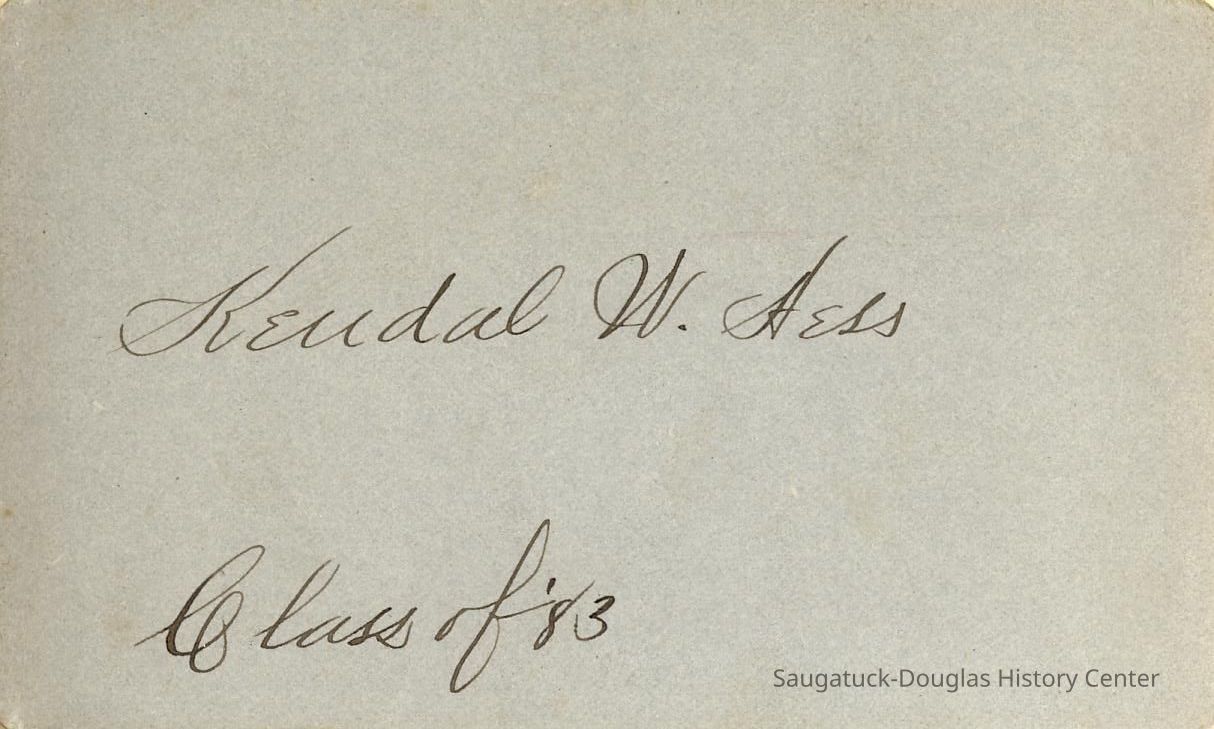 Kendal W. Hess
Class of '83
Saugatuck-Douglas History Center